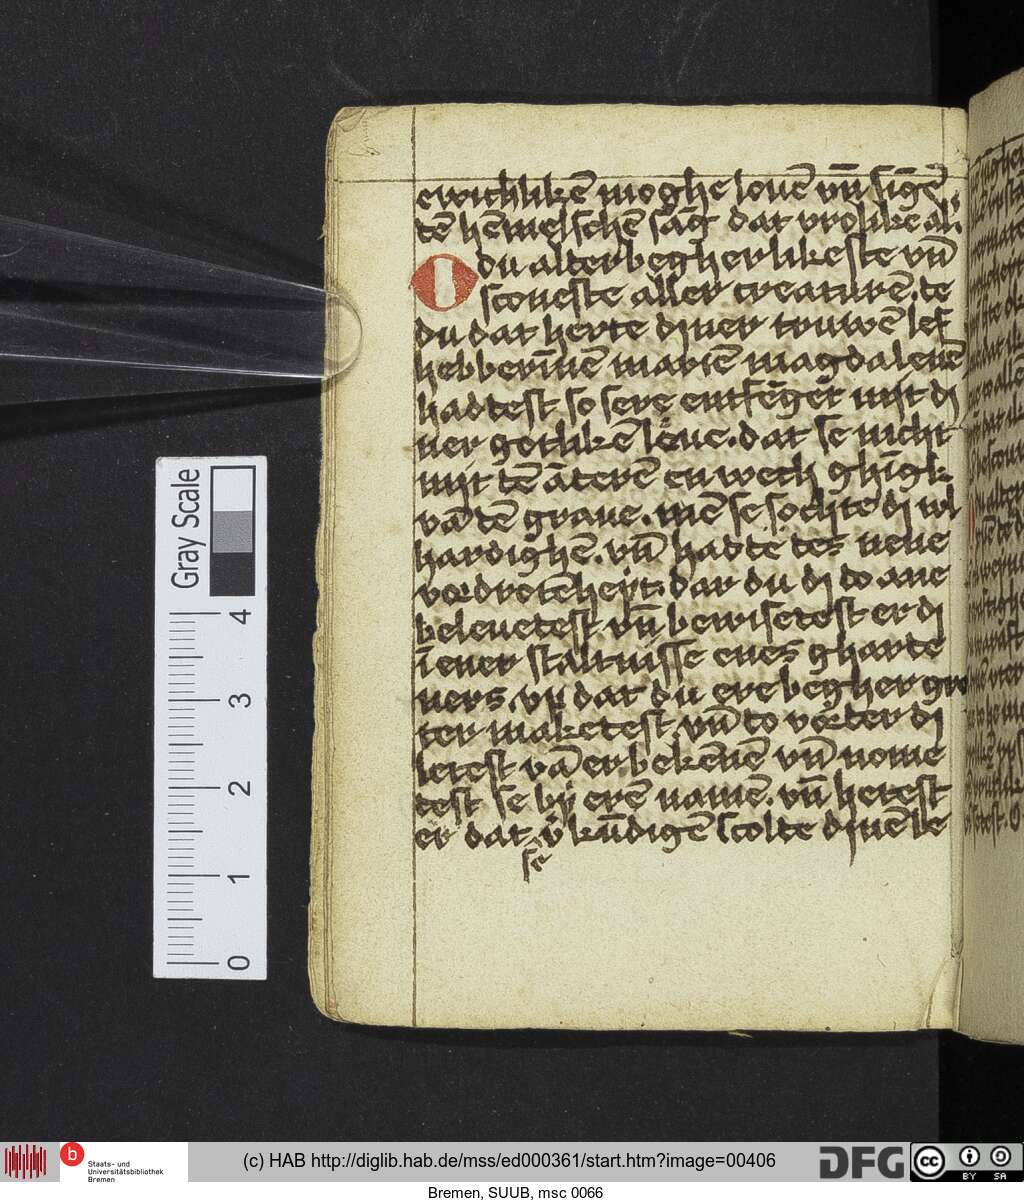 ewichlikē moghe lovē vn̄ singē
tē hēmelschē sāg dat vrolike all.
O du alter begherlikeste vn̄
sconeste aller creaturē. te
du dat herte diner truwē lef
hebberīnē mariē magdalenē
hadtest so sere entfēget mit di
ner gotlikē lēue. dat se nicht
mit tē āterē en wech ghīgk
vā tē graue. mē se sochte di vl
hardighē. vn̄ hadte tes nene
vordrotēheyt. dar du di do ane
beleuetest. vn̄ bewisetest er di
ī ener staltnisse enes gharte
ners. vn̄ dat du ere begher gro
ter maketest. vn̄ to vorter di
letest vā er bekēnē vn̄ nome
test se by erē namē. vn̄ hetest
er dat v̄ kūdigē scolte dinē le
sē
Gray Scale
4
3
2
1
0
b Staats- und
Universitätsbibliothek
Bremen
(c) HAB http://diglib.hab.de/mss/ed000361/start.htm?image=00406
DFG
cc BY SA
Bremen, SUUB, msc 0066